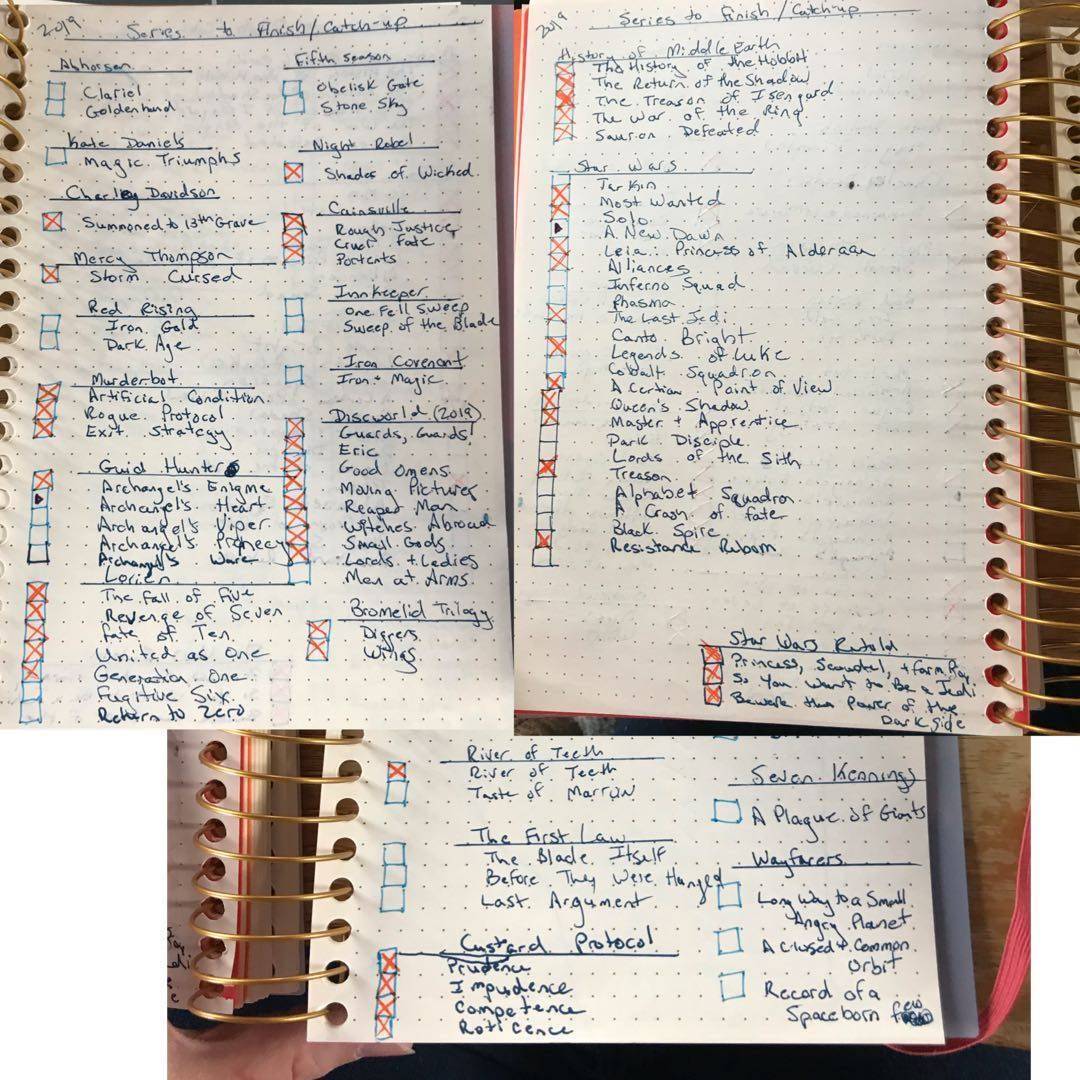 2019
Series to Finish/Catch-up
Abhorsen
Clariel
Goldenhand
Kate Daniels
Magic Triumphs
Charley Davidson
Summoned to 13th Grave
Mercy Thompson
Storm Cursed
Red Rising
Iron Gold
Dark Age
Murderbot
Artificial Condition
Rogue Protocol
Exit Strategy
Guild Hunter
Archangel's Enigma
Archangel's Heart
Archangel's Viper
Archangel's Prophecy
Archangel's War
Lorien
The Fall of Five
Revenge of Seven
Fate of Ten
United as One
Generation One
Fugitive Six
Return to Zero
Fifth Season
Obelisk Gate
Stone Sky
Night Rebel
Shades of Wicked
Cainsville
Rough Justice
Cruel Fate
Portents
Innkeeper
One Fell Sweep
Sweep of the Blade
Iron Covenant
Iron + Magic
Discworld (2019)
Guards, Guards!
Eric
Good Omens
Moving Pictures
Reaper Man
Witches Abroad
Small Gods
Lords + Ladies
Men at Arms
Bromelid Trilogy
Diggers
Wings
2019
Series to Finish/Catch-up
History of Middle Earth
The History of the Hobbit
The Return of the Shadow
The Treason of Isengard
The War of the Ring
Sauron Defeated
Star Wars
Tarkin
Most Wanted
Solo
A New Dawn
Leia: Princess of Alderaan
Alliances
Inferno Squad
Phasma
The Last Jedi
Canto Bright
Legends of Luke
Cobalt Squadron
A Certian Point of View
Queen's Shadow
Master + Apprentice
Dark Disciple
Lords of the Sith
Treason
Alphabet Squadron
A Crash of Fate
Black Spire
Resistance Reborn
Star Wars Retold
Princess, Scoundrel, + Farm Boy
So You Want to Be a Jedi
Beware the Power of the
Dark Side
River of Teeth
River of Teeth
Taste of Marrow
The First Law
The Blade Itself
Before They Were Hanged
Last Argument
Custard Protocol
Prudence
Impudence
Competence
Reticence
Seven Kennings
A Plague of Giants
Wayfarers
Long Way to a Small
Angry Planet
A Closed + Common
Orbit
Record of a
Spaceborn few